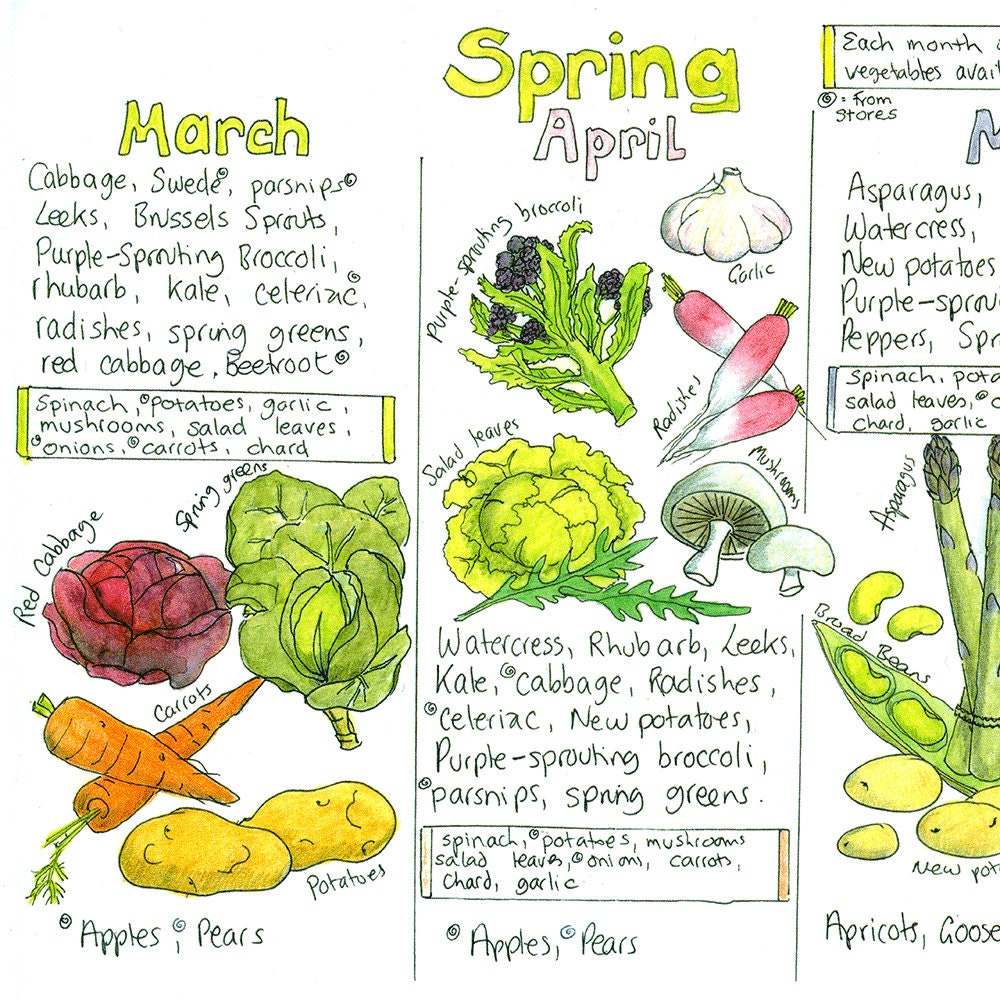 Spring
March
Cabbage, Swede, parsnips
Leeks, Brussels Sprouts,
Purple-Sprouting Broccoli,
rhubarb, kale, celeriac,
radishes, spring greens,
red cabbage, Beetroot
Spinach, potatoes, garlic,
mushrooms, salad leaves,
onions, carrots, chard
Red Cabbage
Spring greens
Carrots
Potatoes
Apples, Pears
April
Purple-sprouting broccoli
Garlic
Radishes
Salad leaves
Mushrooms
Watercress, Rhubarb, Leeks,
Kale, cabbage, Radishes,
celeriac, New potatoes,
Purple-sprouting broccoli,
parsnips, spring greens.
spinach, potatoes, mushrooms
salad leaves, onions, carrots,
Chard, garlic
Apples, Pears
Each month
vegetables avai
= From
Stores
M
Asparagus,
Watercress,
New potatoes
Purple-sprou
Peppers, Spr
Spinach, pota
salad leaves,
chard, garlic
Asparagus
Broad Beans
New pot
Apricots, Goose